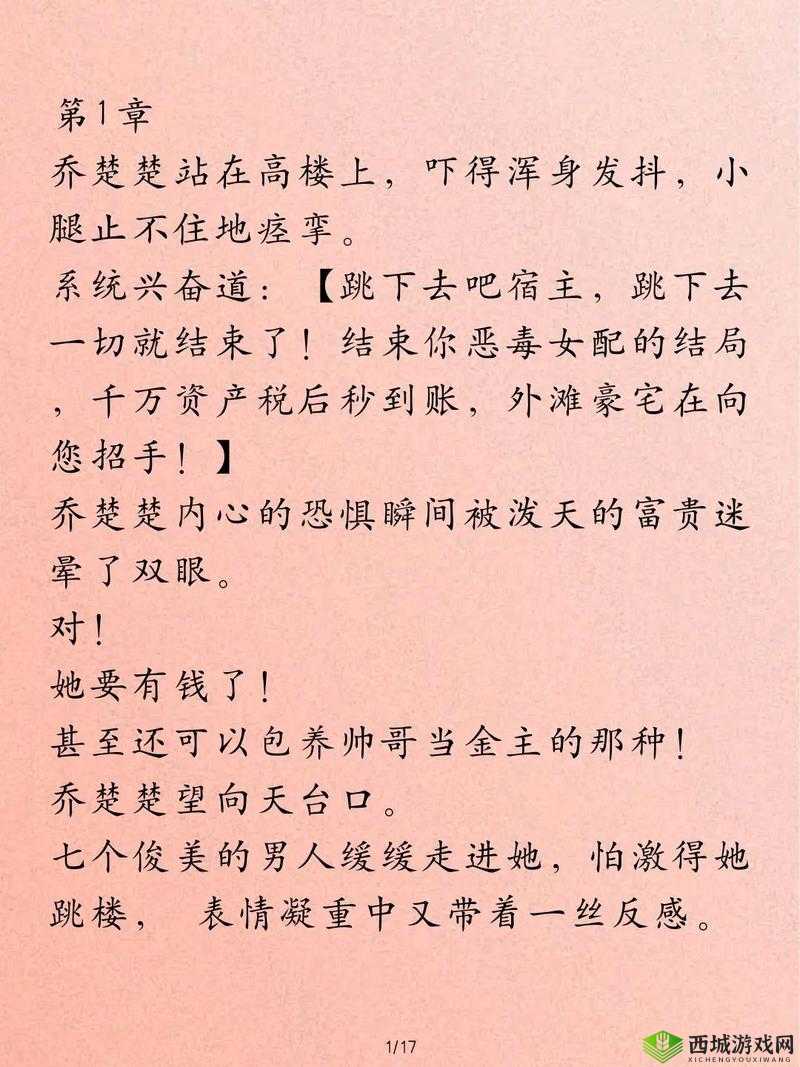 第1章
乔楚楚站在高楼上，吓得浑身发抖，小
腿止不住地痉挛。
系统兴奋道：【跳下去吧宿主，跳下去
一切就结束了！结束你恶毒女配的结局
，千万资产税后秒到账，外滩豪宅在向
您招手！】
乔楚楚内心的恐惧瞬间被泼天的富贵迷
晕了双眼。
对！
她要有钱了！
甚至还可以包养帅哥当金主的那种！
乔楚楚望向天台口。
七个俊美的男人缓缓走进她，怕激得她
跳楼， 表情凝重中又带着一丝反感。
1/17
西城游戏网
XICHENGYOUXIWANG